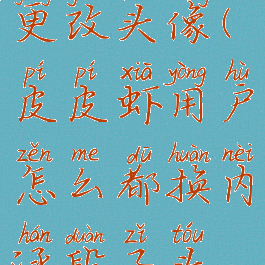 更改头像(
pí pí xiā yòng hù
皮皮虾用户
zěn me dū huàn nèi
怎么都换内
hán duàn zǐ tóu
涵段子头